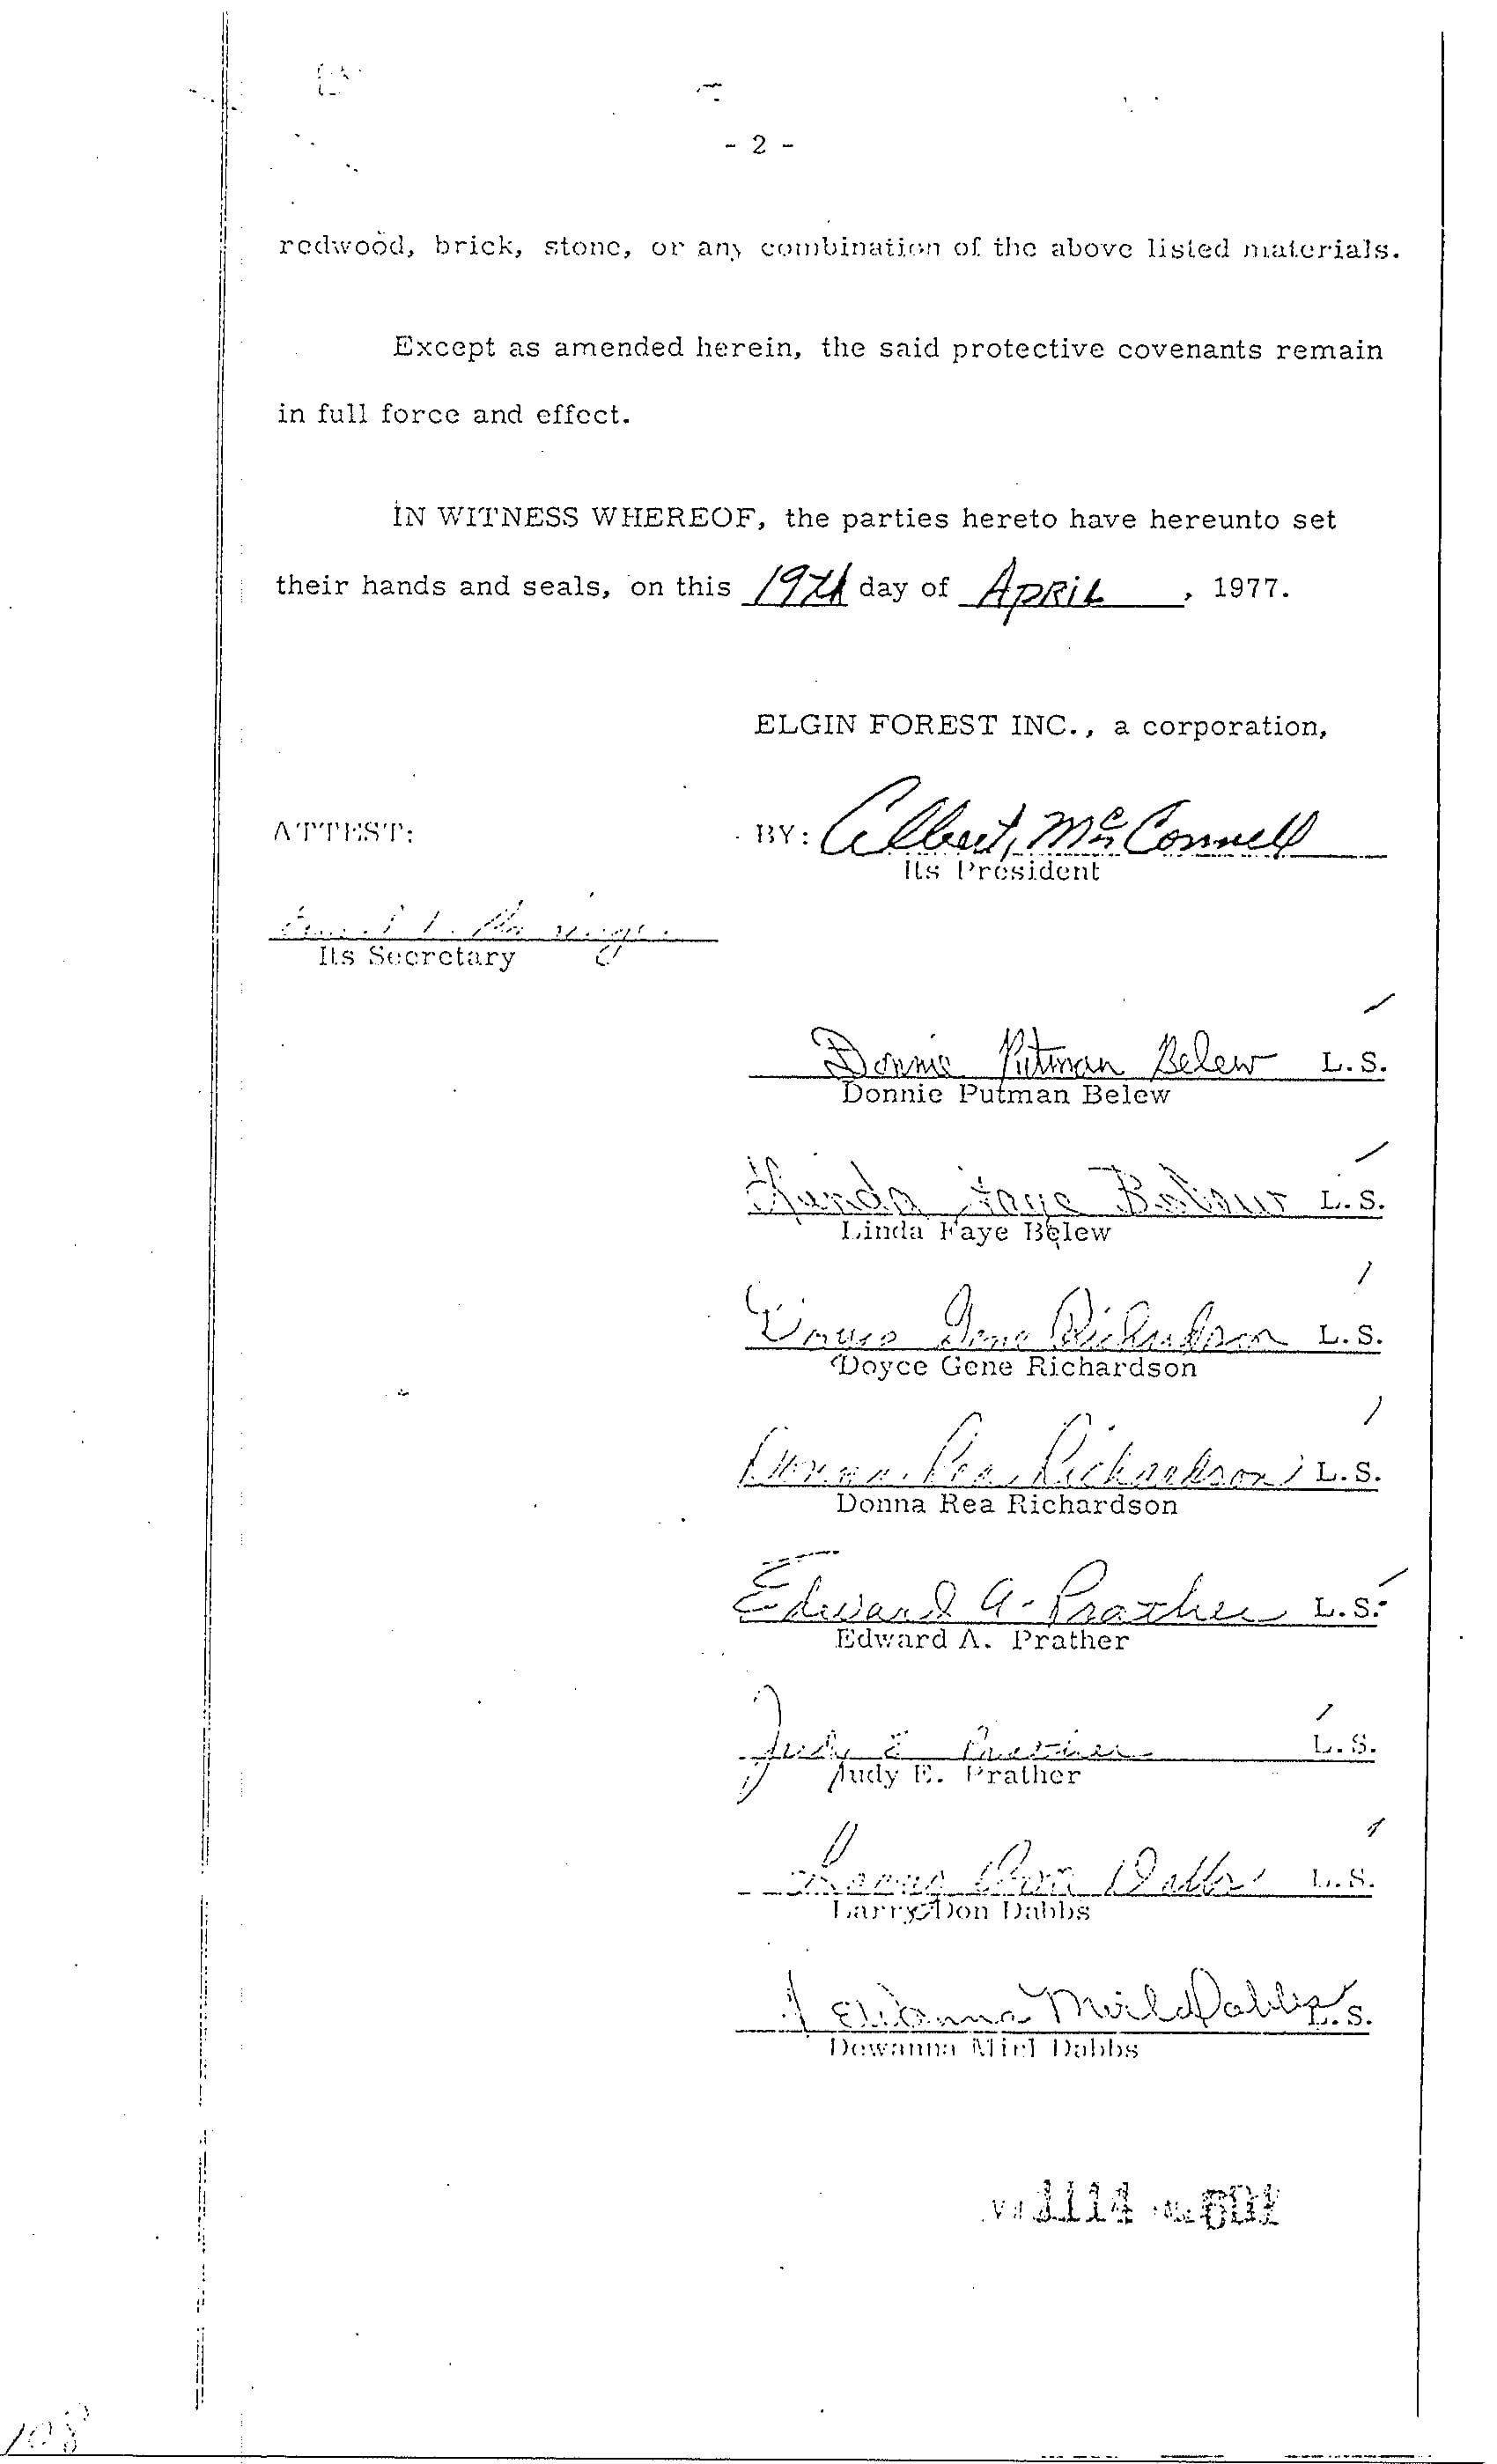 - 2 -
redwood, brick, stone, or any combination of the above listed materials.
Except as amended herein, the said protective covenants remain
in full force and effect.
IN WITNESS WHEREOF, the parties hereto have hereunto set
their hands and seals, on this 19th day of APRIL, 1977.
ELGIN FOREST INC., a corporation,
ATTEST: BY: Albert McConnell
Its President
Its Secretary
Donnie Putman Belew L.S.
Donnie Putman Belew
Linda Faye Belew L.S.
Linda Faye Belew
Doyce Gene Richardson L.S.
Doyce Gene Richardson
Donna Rea Richardson L.S.
Donna Rea Richardson
Edward A. Prather L.S.
Edward A. Prather
Judy E Prather L.S.
Judy E. Prather
Larry Don Dabbs L.S.
Larry Don Dabbs
Dewanna Mirl Dabbs L.S.
Dewanna Mirl Dabbs
1114
108